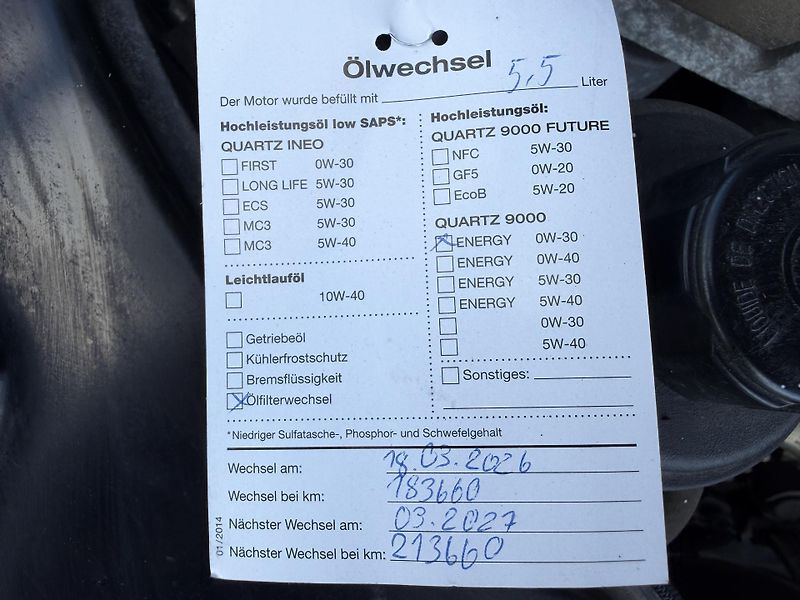 Ölwechsel
Der Motor wurde befüllt mit 5,5 Liter
Hochleistungsöl low SAPS*:
QUARTZ INEO
FIRST 0W-30
LONG LIFE 5W-30
ECS 5W-30
MC3 5W-30
MC3 5W-40
Leichtlauföl
10W-40
Getriebeöl
Kühlerfrostschutz
Bremsflüssigkeit
Ölfilterwechsel
Hochleistungsöl:
QUARTZ 9000 FUTURE
NFC 5W-30
GF5 0W-20
EcoB 5W-20
QUARTZ 9000
ENERGY 0W-30
ENERGY 0W-40
ENERGY 5W-30
ENERGY 5W-40
0W-30
5W-40
Sonstiges:
*Niedriger Sulfatasche-, Phosphor- und Schwefelgehalt
Wechsel am: 18.03.2026
Wechsel bei km: 183660
Nächster Wechsel am: 03.2027
Nächster Wechsel bei km: 213660
01/2014